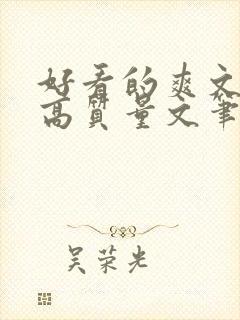 好看的爽文
高质量文笔
吴荣光